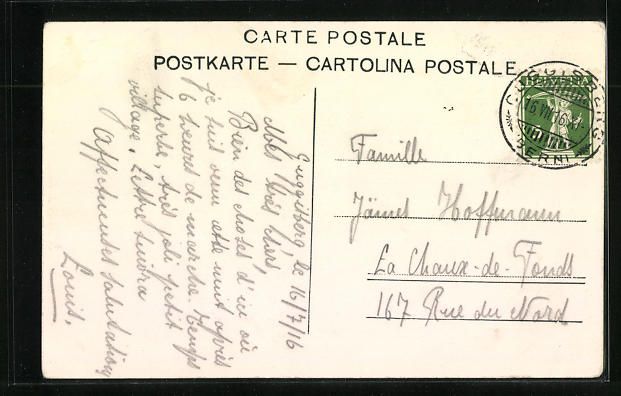 CARTE POSTALE
POSTKARTE — CARTOLINA POSTALE
HELVETIA
GUGGISBERG
16.VII.16
(BERN)
Guggisberg le 16/7/16
Mes très chers,
Bien des choses d'ici où
je suis venu cette nuit après
6 heures de marche. Temps
superbe, très joli petit
village. Lettre suivra
Affectueuses salutations
Louis.
Famille
James Hoffmann
La Chaux-de-Fonds
167 Rue du Nord